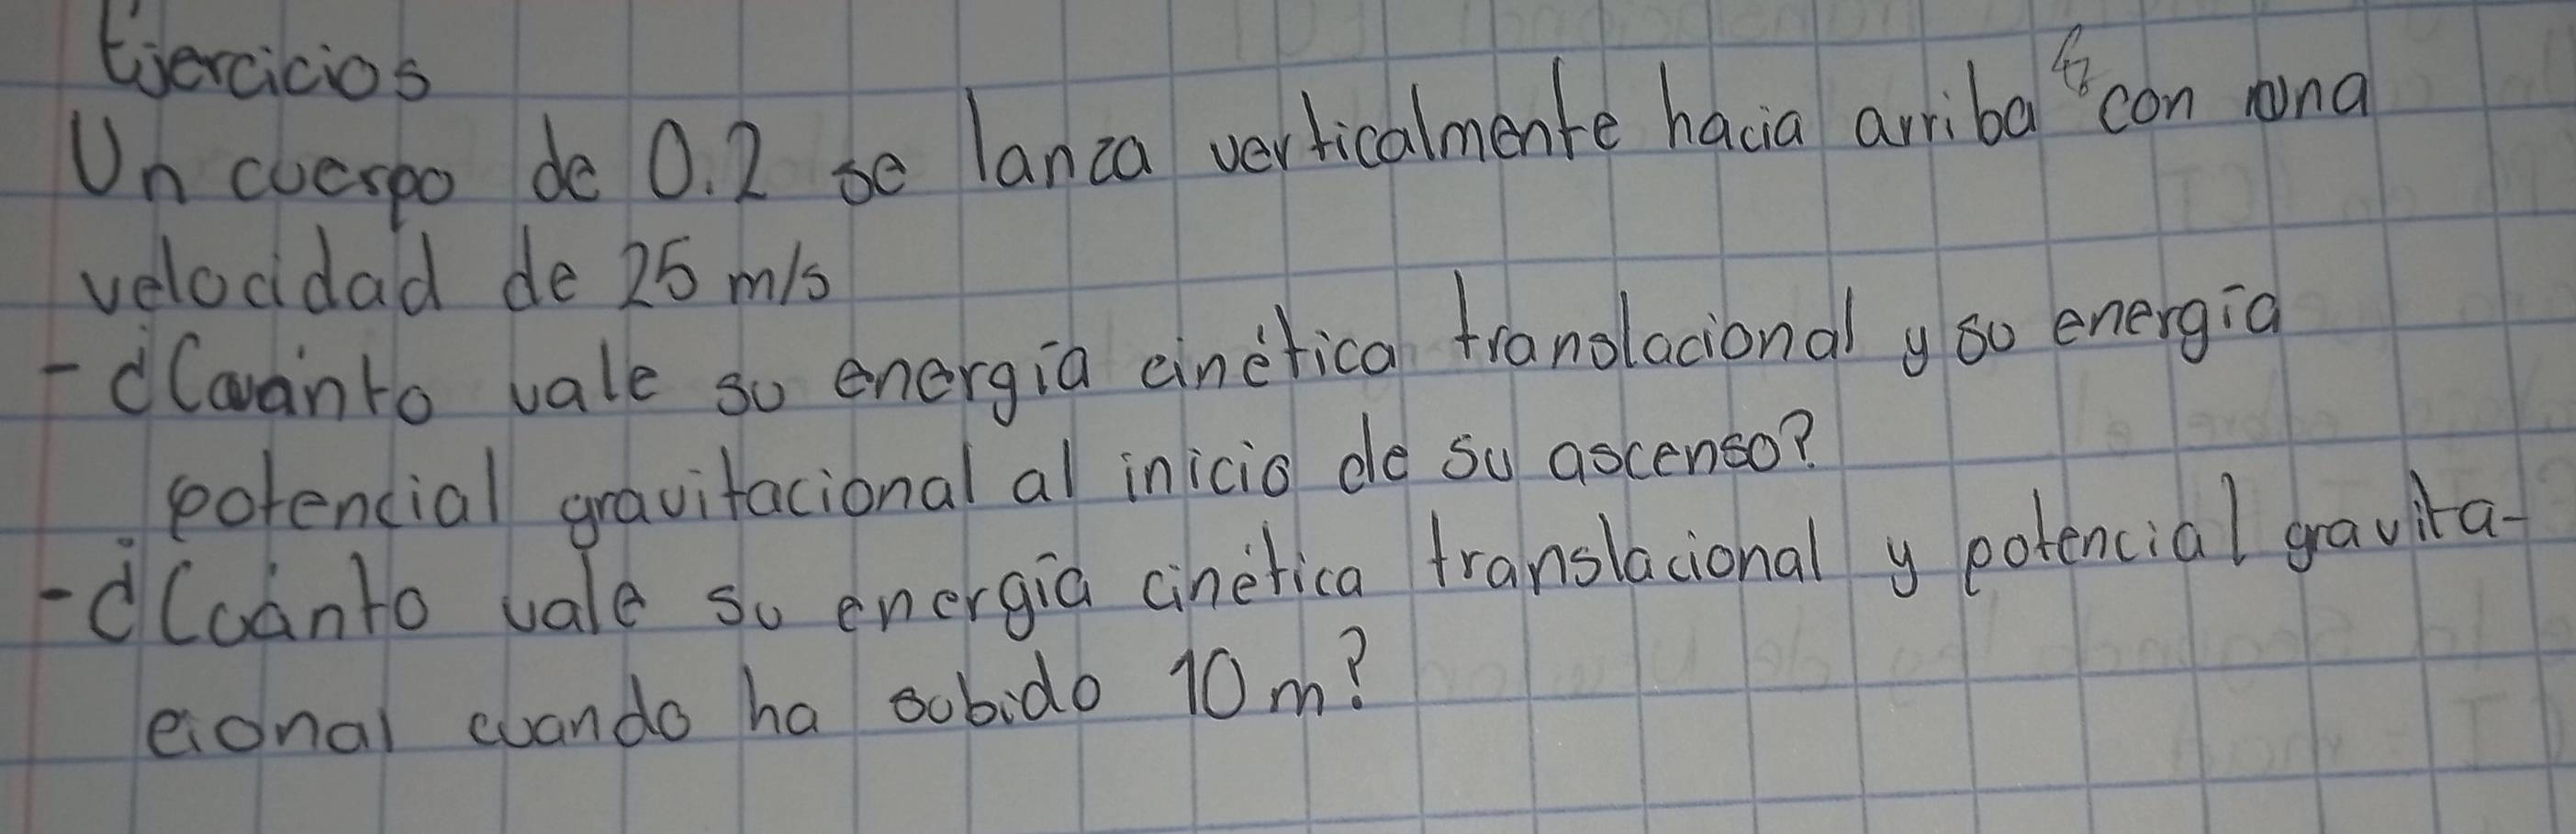 Ejercicios
Un cuerpo de 0.2 se lanza verticalmente hacia arriba con una
velocidad de 25 m/s
- ¿Cuánto vale su energía cinética translacional y su energía
potencial gravitacional al inicio de su ascenso?
- ¿Cuánto vale su energía cinética translacional y potencial gravita-
cional cuando ha subido 10 m?